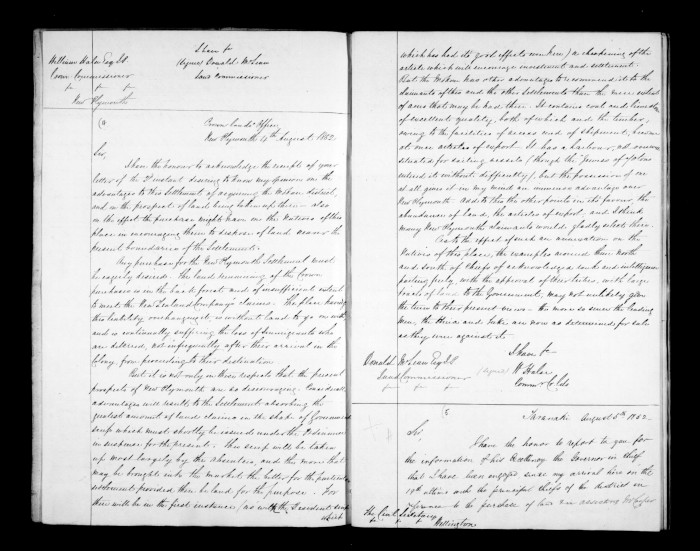 I have &c
William Halse Esq JP
(Signed) Donald McLean
Crown Commissioner
Land Commissioner
&c &c &c
New Plymouth
Crown Lands Office
New Plymouth 4th August 1852
Sir,
I have the honor to acknowledge the receipt of your
letter of the 2nd instant desiring to know my opinion on the
advantages to this Settlement of acquiring the Mokau district,
and on the prospect of land being taken up there - also
on the effect the purchase might have on the Natives of this
place in encouraging them to dispose of land nearer the
present boundaries of the Settlement.
Any purchase for the New Plymouth Settlement must
be eagerly desired. The land remaining of the Crown
purchases is on the back forest and of insufficient extent
to meet the New Zealand Company's claims. The place having
this liability unchanged, it is without land to go on with
and is continually suffering the loss of Immigrants who
are deterred, not infrequently after their arrival in the
Colony, from proceeding to their destination
But it is not only in this respect that the present
prospects of New Plymouth are so discouraging. Considerable
advantages will result to the Settlements absorbing the
greatest amount of land claims in the shape of Government
scrip which must shortly be issued under the Ordinance
in suspense for the present. This scrip will be taken
up most largely by the absentees and the more that
may be brought into the market the better for the particular
settlement provided there be land for the purpose. For
there will be in the first instance (as with the Resident scrip
which
which has had its good effects even here) a cheapening of the
article which will encourage investment and settlement.
But the Mokau has other advantages to recommend it to the
claimants of this and the other Settlements than the mere extent
of acres that may be had there. It contains coal and limestone
of excellent quality, both of which and the timber,
owing to the facilities of access and of shipment, become
at once articles of export. It has a harbour, not unsuitably
situated for sailing vessels (though the "Jewess" of 70 tons
entered it without difficulty), but the possession of one
at all gives it in my mind an immense advantage over
New Plymouth. Add to this the other points in its favor, the
abundance of land, the articles of export, and I think
many New Plymouth claimants would gladly select there.
As to the effect of such an acquisition on the
Natives of this place, the examples around them north
and south of Chiefs of acknowledged rank and intelligence
parting freely, with the approval of their tribes, with large
tracts of land to the Government, may not unlikely give
the turn to their present views - the more so since the leading
men, the Hua and Inke, are now as determined for sale
as they were against it.
I have &c
Donald McLean Esq JP
(Signed) W Halse
Land Commissioner
Commr C. Lds
&c &c &c
Taranaki August 5th 1852
Sir,
I have the honor to report to you for
the information of His Excellency the Governor in Chief
that I have been engaged since my arrival here on the
19th ultimo with the principal Chiefs of the district in
reference to the purchase of land
The Civil Secretary
&c &c &c
Wellington